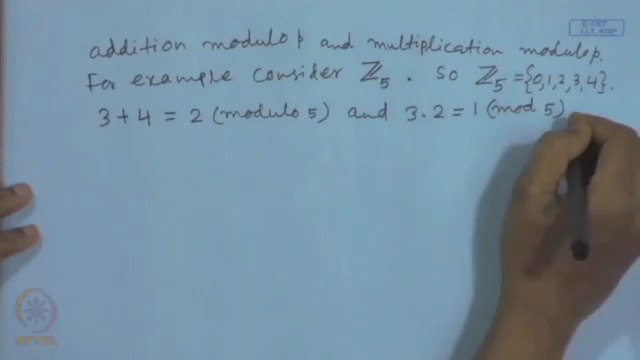 © CET
I.I.T. KGP
addition modulo p and multiplication modulo p.
For example consider ℤ₅ . So ℤ₅ = {0,1,2,3,4}.
3 + 4 = 2 (modulo 5) and 3 . 2 = 1 (mod 5)
NPTEL